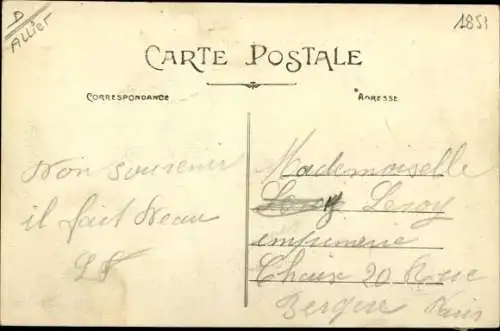 D
Allier
1851
CARTE POSTALE
CORRESPONDANCE
ADRESSE
Mon souvenir
il fait beau
Mademoiselle
Leroy
imprimerie
Chaix 20 Rue
Bergère Paris